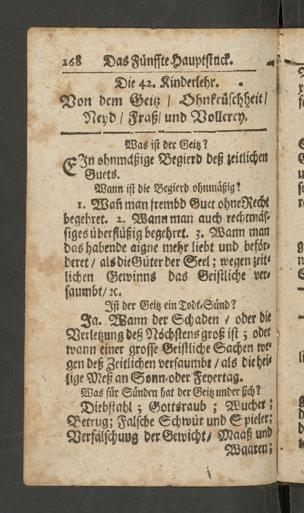 268 Das Fünffte Hauptstuck.
Die 42. Kinderlehr.
Von dem Geitz / Ohnkeüschheit /
Neyd / Fraß / und Vollerey.
Was ist der Geitz?
Ein ohnmäßige Begierd deß zeitlichen
Guets.
Wann ist die Begierd ohnmäßig?
1. Wañ man frembd Guet ohne Recht
begehret. 2. Wann man auch rechtmäs-
siges überflüßig begehret. 3. Wann man
das habende aigne mehr liebt und beför-
deret / als die Güter der Seel; wegen zeit-
lichen Gewinns das Geistliche ver-
saumbt / ꝛc.
Ist der Geitz ein Todt-Sünd?
Ja. Wann der Schaden / oder die
Verletzung deß Nöchstens groß ist; oder
wann einer grosse Geistliche Sachen we-
gen deß Zeitlichen versaumbt / als die hei-
lige Meß an Sonn- oder Feyertag.
Was für Sünden hat der Geitz under sich?
Diebstahl; Gottsraub; Wucher;
Betrug; Falsche Schwür und Spieler;
Verfälschung der Gewicht / Maaß und
Waaren;